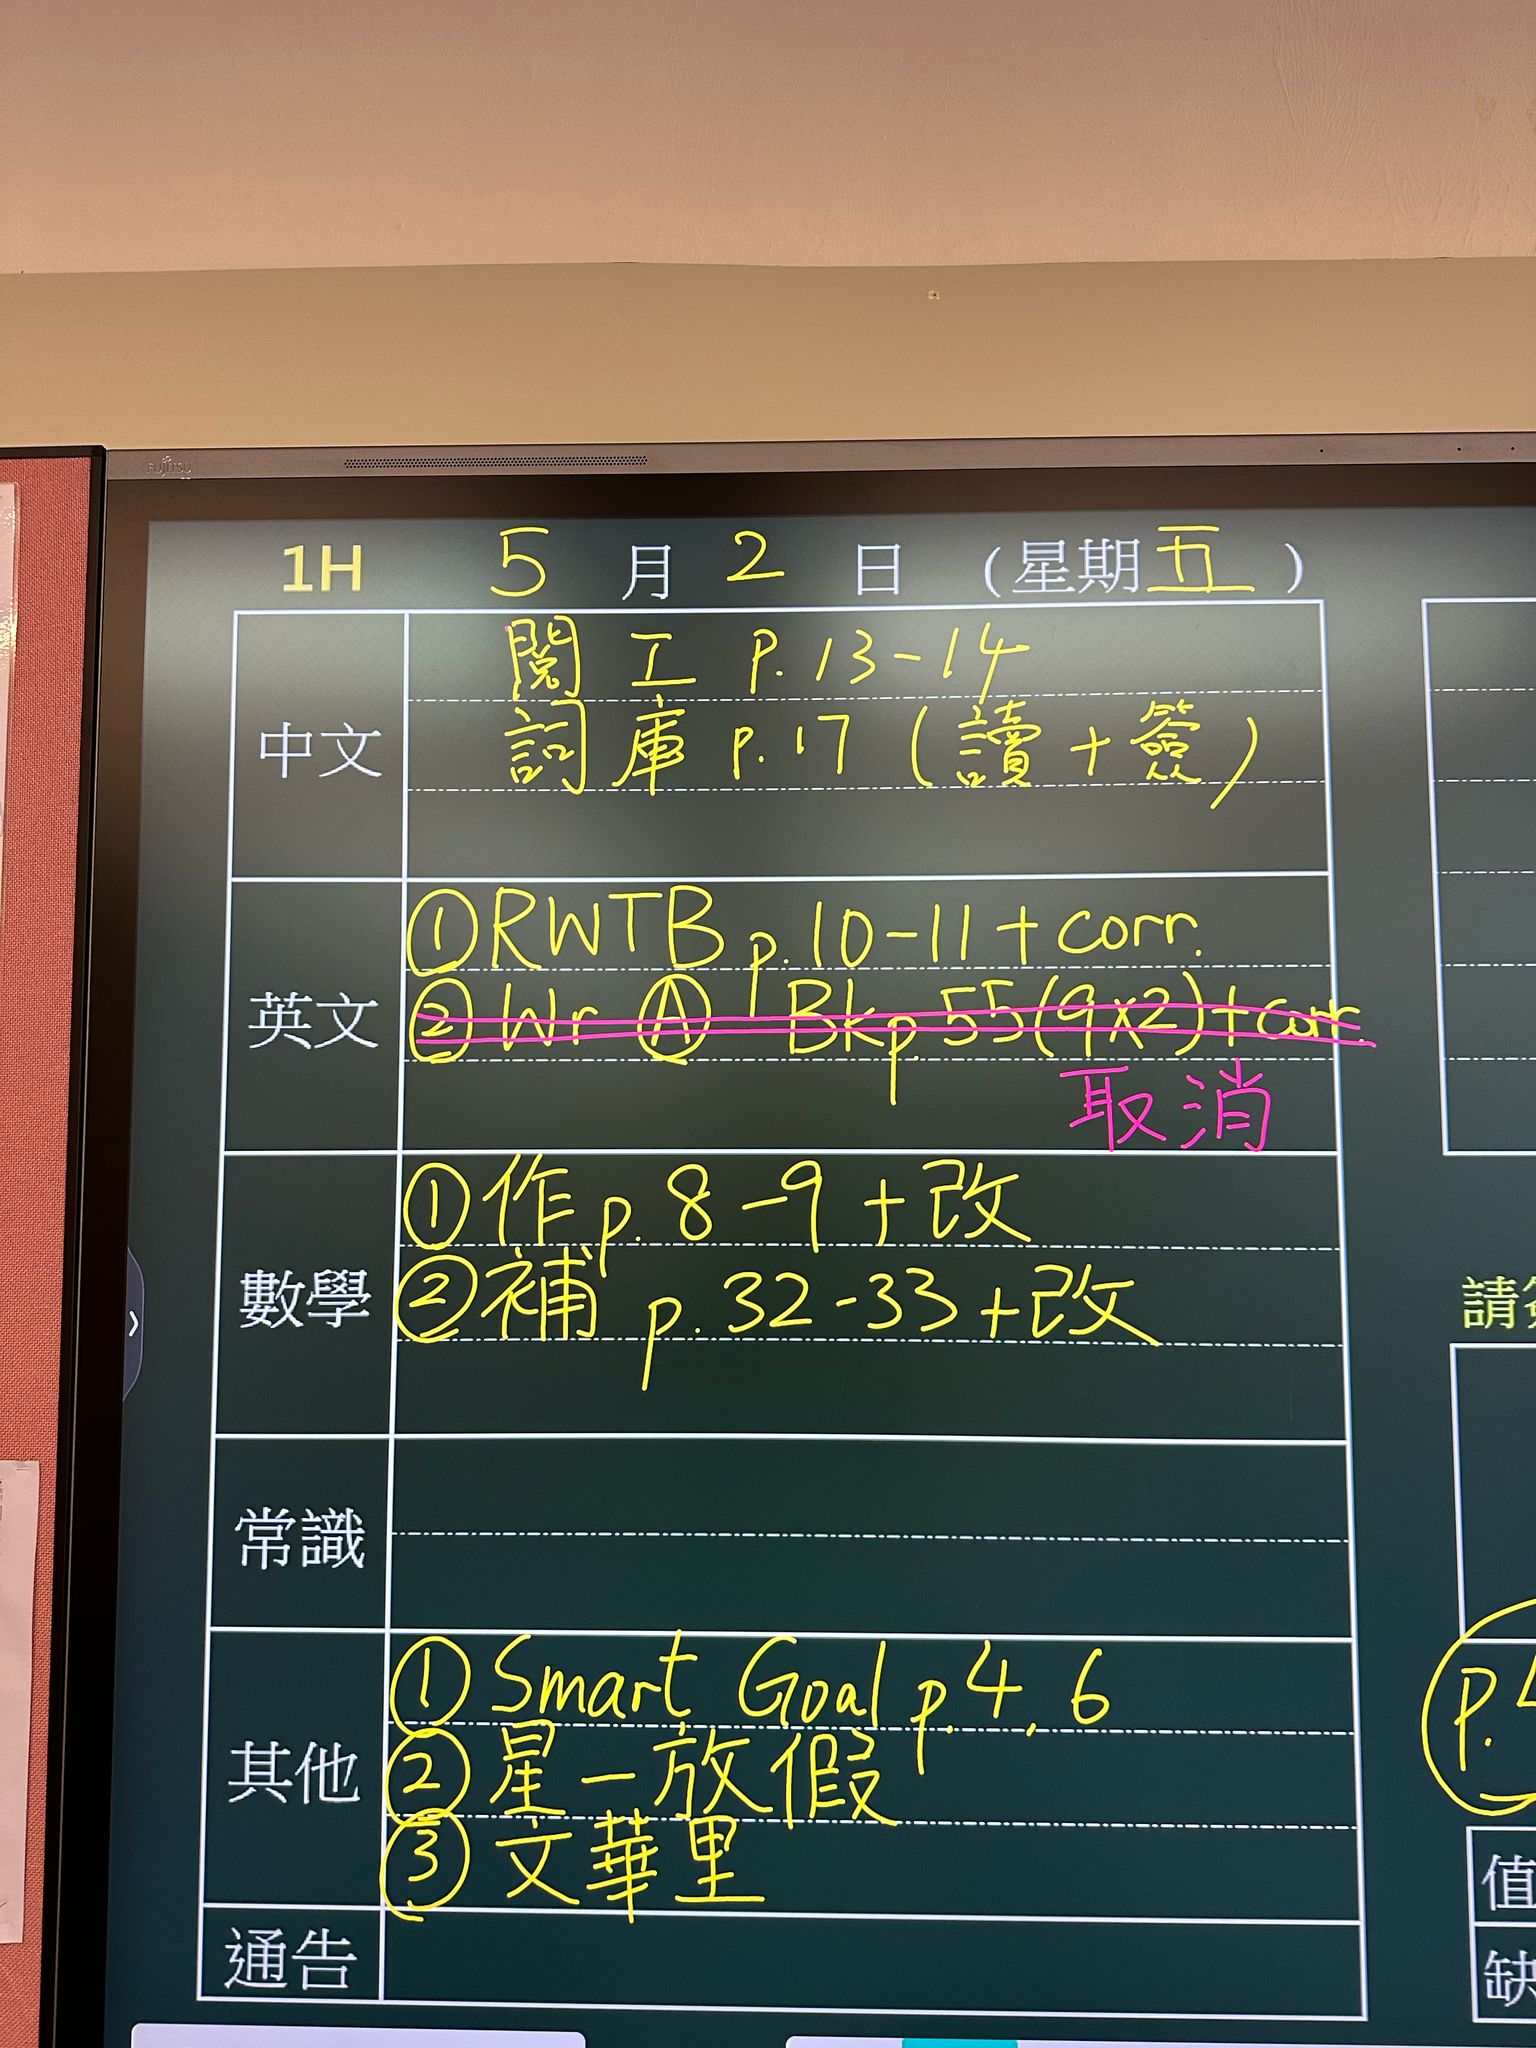 FUJITSU
1H 5月2日(星期五)
中文
閱工 P.13-14
詞庫 p.17 (讀+簽)
英文
①RWTB p.10-11+corr.
② Wr Ⓐ Bk p.55(9x2)+corr.
取消
數學
①作p.8-9+改
②補 p.32-33+改
常識
其他
①Smart Goal p.4, 6
②星一放假
③文華里
通告
請
p.
值
缺